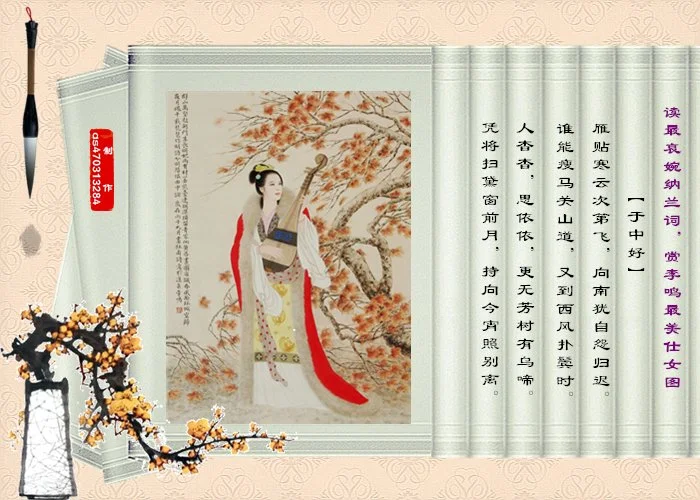 读最哀婉纳兰词，赏李鸣最美仕女图
【于中好】
雁贴寒云次第飞，向南犹自怨归迟。
谁能瘦马关山道，又到西风扑鬓时。
人杳杳，思依依，更无芳树有乌啼。
凭将扫黛窗前月，持向今宵照别离。
制作
as470313284